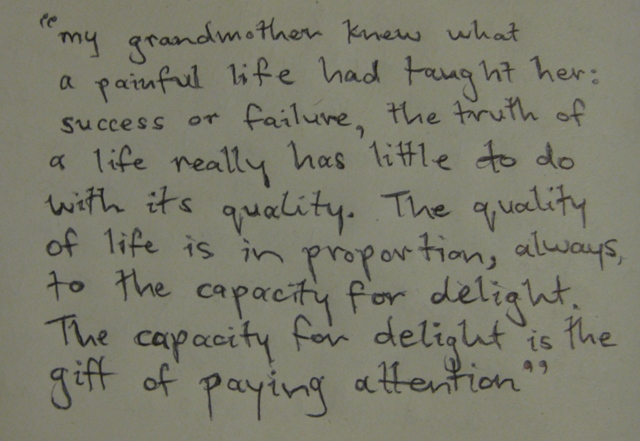 "my grandmother knew what
a painful life had taught her:
success or failure, the truth of
a life really has little to do
with its quality. The quality
of life is in proportion, always,
to the capacity for delight.
The capacity for delight is the
gift of paying attention"